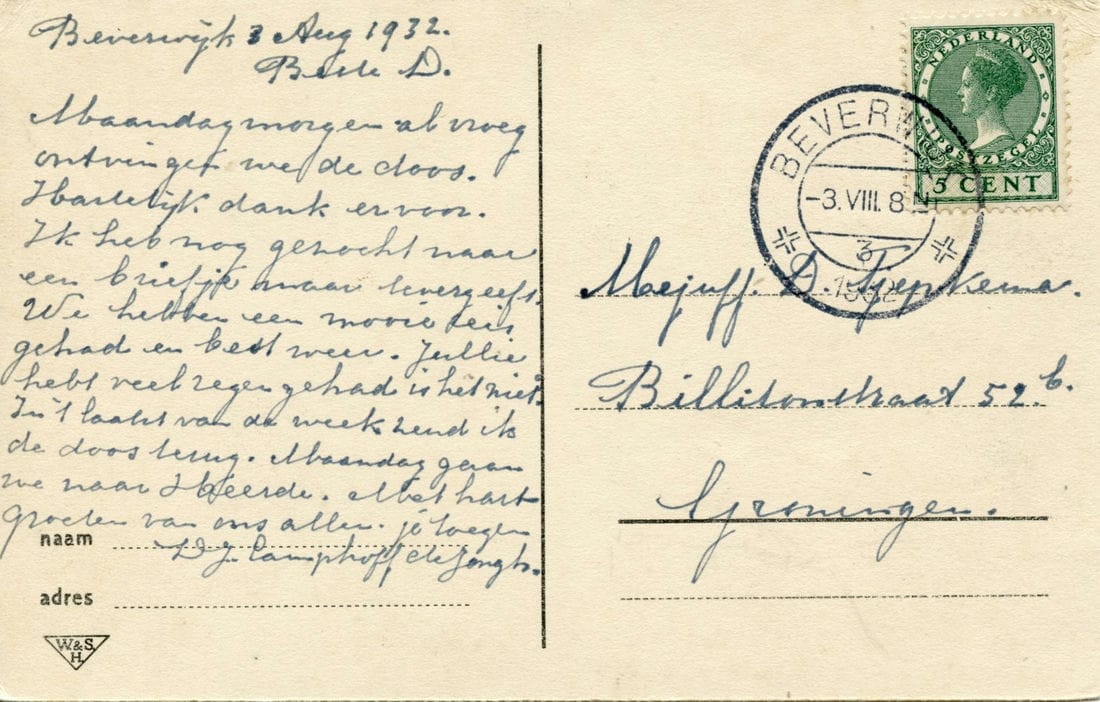 Beverwijk 3 Aug 1932.
Beste D.
Maandagmorgen al vroeg
ontvingen we de doos.
Hartelijk dank ervoor.
Ik heb nog gezocht naar
een briefje maar tevergeefs.
We hebben een mooie reis
gehad en best weer. Jullie
hebt veel regen gehad is het niet?
In 't laatst van de week zend ik
de doos terug. Maandag gaan
we naar Heerde. Met hart
groeten van ons allen. je toegen
D J. Camphoff, de Jongh.
naam
adres
W.&S.
H.
NEDERLAND
POSTZEGEL
5 CENT
BEVERWIJK
-3.VIII. 8-
3
1932
Mejuff. D. Tjepkema.
Billitonstraat 52 b.
Groningen.